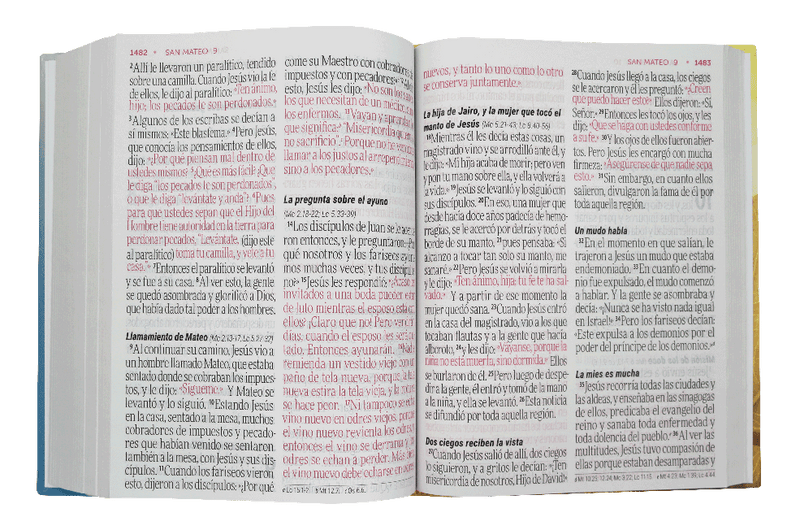 1482 • SAN MATEO 9
²Allí le llevaron un paralítico, tendido
sobre una camilla. Cuando Jesús vio la fe
de ellos, le dijo al paralítico: «Ten ánimo,
hijo; los pecados te son perdonados.»
³Algunos de los escribas se decían a
sí mismos: «Éste blasfema.» ⁴Pero Jesús,
que conocía los pensamientos de ellos,
dijo: «¿Por qué piensan mal dentro de
ustedes mismos? ⁵¿Qué es más fácil? ¿Que
le diga "los pecados te son perdonados",
o que le diga "levántate y anda"? ⁶Pues
para que ustedes sepan que el Hijo del
Hombre tiene autoridad en la tierra para
perdonar pecados, "Levántate, (dijo éste
al paralítico) toma tu camilla, y vete a tu
casa."» ⁷Entonces el paralítico se levantó
y se fue a su casa. ⁸Al ver esto, la gente
se quedó asombrada y glorificó a Dios,
que había dado tal poder a los hombres.
Llamamiento de Mateo (Mc 2.13-17; Lc 5.27-32)
⁹Al continuar su camino, Jesús vio a
un hombre llamado Mateo, que estaba
sentado donde se cobraban los impues-
tos, y le dijo: «Sígueme.» Y Mateo se
levantó y lo siguió. ¹⁰Estando Jesús
en la casa, sentado a la mesa, muchos
cobradores de impuestos y pecado-
res que habían venido se sentaron
también a la mesa, con Jesús y sus dis-
cípulos. ¹¹Cuando los fariseos vieron
esto, dijeron a los discípulos: «¿Por qué
come su Maestro con cobradores de
impuestos y con pecadores?»
esto, Jesús les dijo: «No son los sanos
los que necesitan de un médico, sino
los enfermos. ¹³Vayan y aprendan lo
que significa: "Misericordia quiero,
no sacrificio". Porque no he venido a
llamar a los justos al arrepentimiento,
sino a los pecadores.»
La pregunta sobre el ayuno
(Mc 2.18-22; Lc 5.33-39)
¹⁴Los discípulos de Juan se le acerca-
ron entonces, y le preguntaron: «¿Por
qué nosotros y los fariseos ayuna-
mos muchas veces, y tus discípulos
no?» ¹⁵Jesús les respondió: «¿Acaso los
invitados a una boda pueden estar
de luto mientras el esposo está con
ellos? ¡Claro que no! Pero vendrán
días, cuando el esposo les será qui-
tado. Entonces ayunarán. ¹⁶Nadie
remienda un vestido viejo con un
paño de tela nueva, porque la tela
nueva estira la tela vieja, y la rotura
se hace peor. ¹⁷Ni tampoco se echa
vino nuevo en odres viejos, porque
el vino nuevo revienta los odres,
entonces el vino se derrama y los
odres se echan a perder. Más bien,
el vino nuevo debe echarse en odres
SAN MATEO 9 • 1483
nuevos, y tanto lo uno como lo otro
se conserva juntamente.»
La hija de Jairo, y la mujer que tocó el
manto de Jesús (Mc 5.21-43; Lc 8.40-56)
¹⁸Mientras él les decía estas cosas, un
magistrado vino y se arrodilló ante él, y
le dijo: «Mi hija acaba de morir; pero ven
y pon tu mano sobre ella, y ella volverá
a la vida.» ¹⁹Jesús se levantó y lo siguió con
sus discípulos. ²⁰En eso, una mujer que
desde hacía doce años padecía de hemo-
rragias, se le acercó por detrás y tocó el
borde de su manto, ²¹pues pensaba: «Si
alcanzo a tocar tan solo su manto, me
sanaré.» ²²Pero Jesús se volvió a mirarla
y le dijo: «Ten ánimo, hija; tu fe te ha sal-
vado.» Y a partir de ese momento la
mujer quedó sana. ²³Cuando Jesús entró
en la casa del magistrado, vio a los que
tocaban flautas y a la gente que hacía
alboroto, ²⁴y les dijo: «Váyanse, porque la
niña no está muerta, sino dormida.» Ellos
se burlaron de él. ²⁵Pero luego de despe-
dir a la gente, él entró y tomó de la mano
a la niña, y ella se levantó. ²⁶Esta noticia
se difundió por toda aquella región.
Dos ciegos reciben la vista
²⁷Cuando Jesús salió de allí, dos ciegos
lo siguieron, y a gritos le decían: «¡Ten
misericordia de nosotros, Hijo de David!»
²⁸Cuando Jesús llegó a la casa, los ciegos
se le acercaron y él les preguntó: «¿Creen
que puedo hacer esto?» Ellos dijeron: «Sí,
Señor.» ²⁹Entonces les tocó los ojos, y les
dijo: «Que se haga con ustedes conforme
a su fe.» ³⁰Y los ojos de ellos fueron abier-
tos. Pero Jesús les encargó con mucha
firmeza: «Asegúrense de que nadie sepa
esto.» ³¹Sin embargo, en cuanto ellos
salieron, divulgaron la fama de él por
toda aquella región.
Un mudo habla
³²En el momento en que salían, le
trajeron a Jesús un mudo que estaba
endemoniado. ³³En cuanto el demo-
nio fue expulsado, el mudo comenzó
a hablar. Y la gente se asombraba y
decía: «¡Nunca se ha visto nada igual
en Israel!» ³⁴Pero los fariseos decían:
«Éste expulsa a los demonios por el
poder del príncipe de los demonios.»
La mies es mucha
³⁵Jesús recorría todas las ciudades y
las aldeas, y enseñaba en las sinagogas
de ellos, predicaba el evangelio del
reino y sanaba toda enfermedad y
toda dolencia del pueblo. ³⁶Al ver las
multitudes, Jesús tuvo compasión de
ellas porque estaban desamparadas y